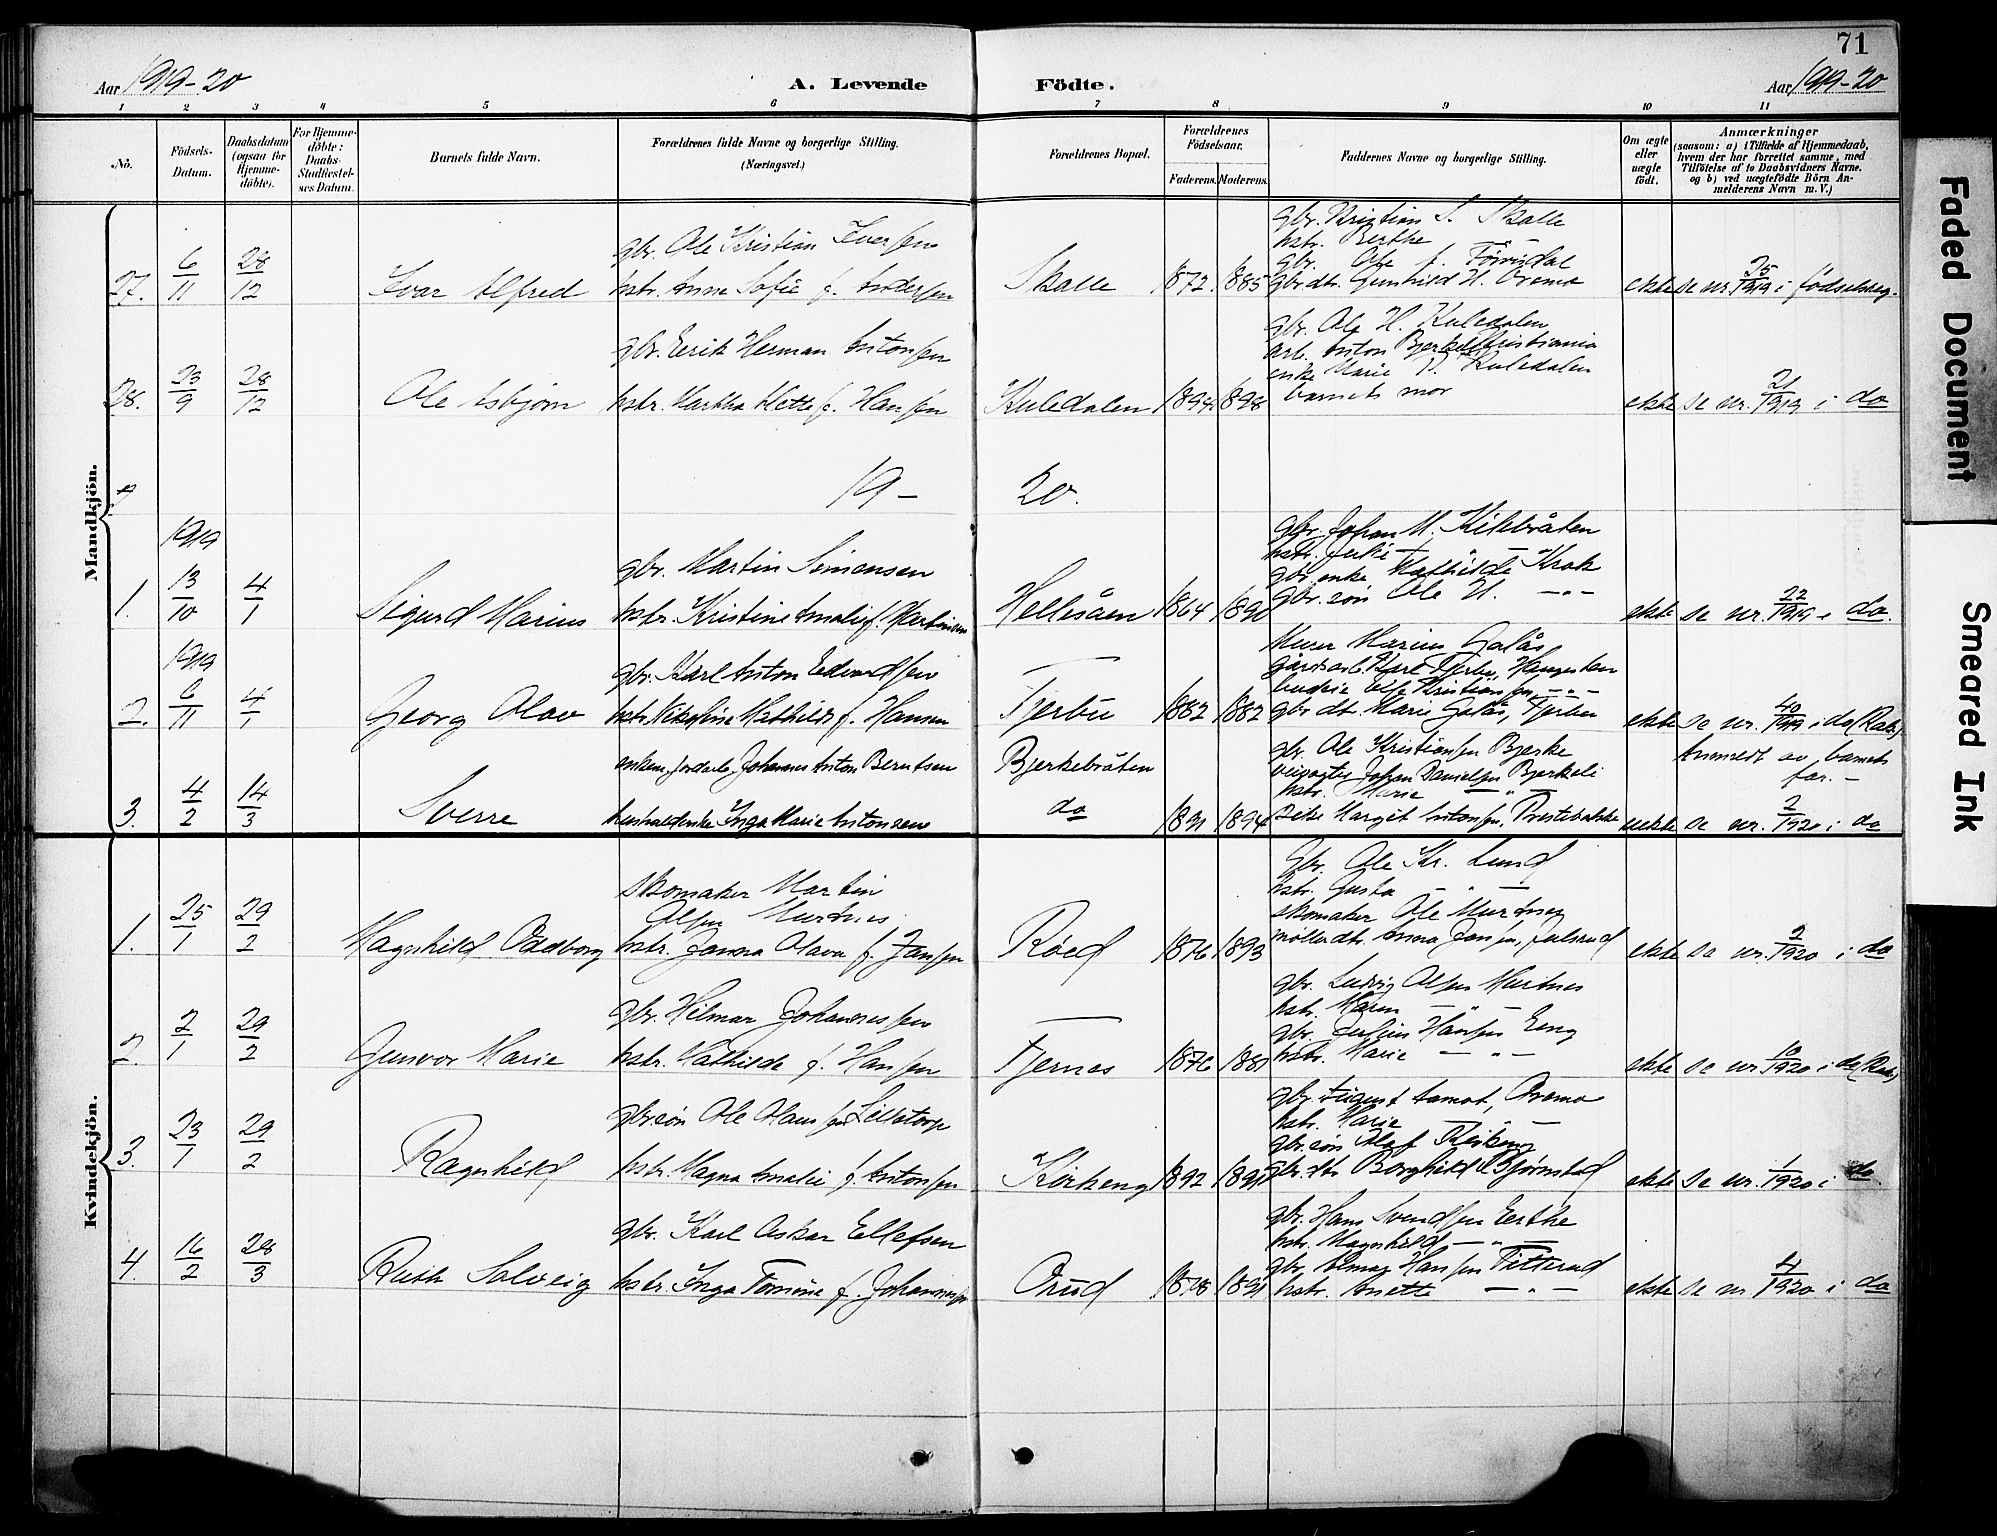 71
Aar 1919-20
A. Levende Födte.
Aar 1919-20
1 2 3 4 5 6 7 8 9 10 11
No.
Födsels-Datum.
Daabsdatum (ogsaa for Hjemme-döbte).
For Hjemme-döbte: Daabs-Stadfæstel-ses Datum.
Barnets fulde Navn.
Forældrenes fulde Navne og borgerlige Stilling. (Næringsvei.)
Forældrenes Bopæl.
Forældrenes Födselsaar.
Faderens. Moderens.
Faddernes Navne og borgerlige Stilling.
Om ægte eller uægte født.
Anmærkninger
(saasom: a) i Tilfælde af Hjemmedaab, hvem der har forrettet samme, med Tilföielse af to Daabsvidners Navne, og b) ved uægtefödte Börn An-melderens Navn m. V.)
Mandkjön.
27. 6/11 28/12 Ivar Alfred
gbr. Ole Kristian Iversen
hstr. Anna Sofie f. Andersen
Skalle 1872 1885
gbr. Kristian I. Skalle
hstr. Berthe — " —
gbr. Ole
gbr.dtr. Gunhild H. Oremo
ekte se nr. 25/1919 i fødselsreg.
28. 23/9 28/12 Ole Asbjørn
gbr. Eerik Herman Antonsen
hstr. Martha Mette f. Hansen
Kuledalen 1894 1898
gbr. Ole H. Kuledalen
arb. Anton Kristiania
enke Marie Kuledalen
barnets mor
ekte se nr. 21/1919 i do
19-20.
1919
1. 13/10 4/1 Sigurd Marius
gbr. Martin Simensen
hstr. Kristine Amalie f. Martinsen
Hellesåen 1864 1890
gbr. Johan M. Kilebråten
hstr.
gbr.enke Mathilde Krok
gbr.søn Ole H. — " —
ekte se nr. 22/1919 i do.
1919
2. 6/11 4/1 Georg Olav
gbr. Karl Anton Edvardsen
hstr. Nikoline Mathilde f. Hansen
Tjerbu 1882 1882
Murer Marius Galås
gårdsarb. Karl Tjerbu,
budeie Kristiansen, — " —
gbr.dt. Marie Galås, Tjerbu
ekte se nr. 40/1919 i do
3. 4/2 14/3 Sverre
enkem. Johannes Anton Berntsen
Inga Marie Antonsen
Bjerkebråten
do 1891 1894
gbr. Ole Kristiansen Bjerke
Johan Danielsen Bjerkeli
hstr. Marie — " —
pike Margit Antonsen, Prestebakke
uekte
Anmeldt av barnets far. —
se nr. 2/1920 i do
Kvindekjön.
1. 25/1 29/2 Magnhild Oddborg
skomaker Martin
Olsen Murtnes
hstr. Janna Olava f. Jansen
Röed 1876 1893
Gbr. Ole Kr. Lund
hstr. Gusta — " —
skomaker Ole Murtnes
møllerdtr. Anna Jansen,
ekte se nr. 2/1920 i do
2. 2/1 29/2 Gunvor Marie
gbr. Hilmar Johannessen
hstr. Mathilde f. Hansen
Tjernes 1876 1881
gbr. Ludvig Olsen Murtnes
hstr. Maren — " —
gbr. Julius Hansen Eeng
hstr. Marie — " —
ekte se nr. 10/1920 i do
3. 23/1 29/2 Ragnhild
gbr.søn Ole Olaus
hstr. Magna Amalie f. Antonsen
Kirkeng 1892
gbr. August Aamot, Oremo
hstr. Marie — " —
gbr.søn Olaf Kirkeng
gbr.dtr. Borghild Bjørnstad
ekte se nr. 1/1920 i do
4. 16/2 28/3 Ruth Solveig
gbr. Karl Oskar Ellefsen
hstr. Inga Tomine f. Johannessen
Orud 1878 1891
gbr. Hans Svendsen Eerthe
hstr. Magnhild — " —
gbr. Hansen Titterud
hstr. Anette — " —
ekte se nr. 4/1920 i do
Faded Document
Smeared Ink